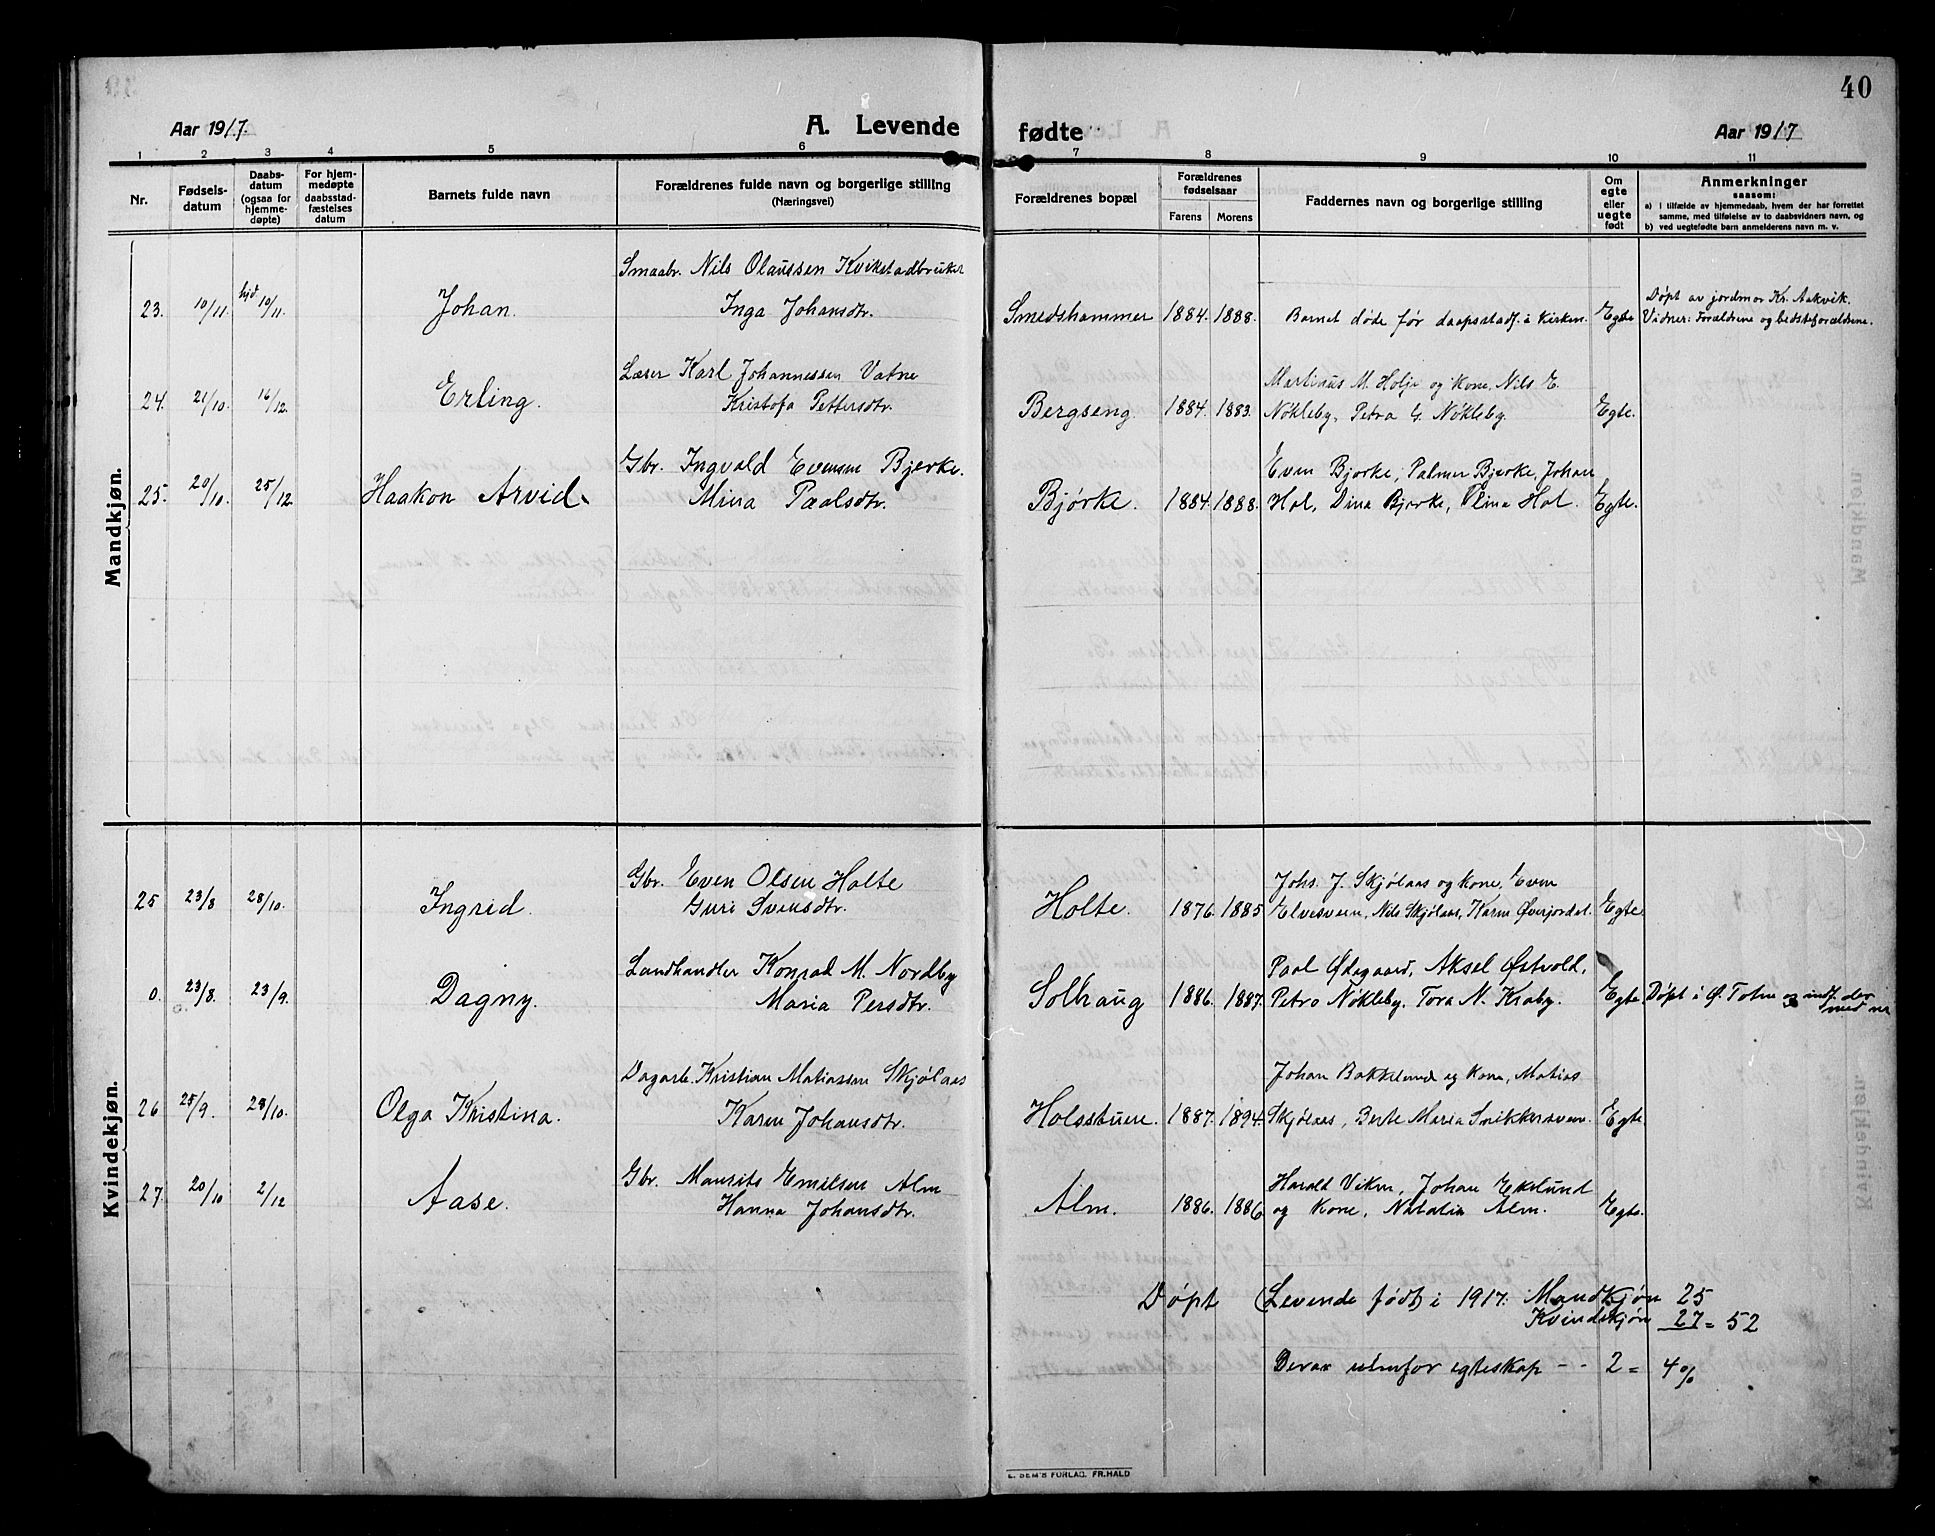 40
Aar 1917.
A. Levende fødte
Aar 1917
1 2 3 4 5 6 7 8 9 10 11
Nr.
Fødsels-
datum
Daabs-
datum
(ogsaa for
hjemme-
døpte)
For hjem-
medøpte
daabsstad-
fæstelses
datum
Barnets fulde navn
Forældrenes fulde navn og borgerlige stilling
(Næringsvei)
Forældrenes bopæl
Forældrenes
fødselsaar
Farens Morens
Faddernes navn og borgerlige stilling
Om
egte
eller
uegte
født
Anmerkninger
saasom:
a) i tilfælde av hjemmedaab, hvem der har forrettet
samme, med tilføielse av to daabsvidners navn, og
b) ved uegtefødte barn anmelderens navn m. v.
Mandkjøn.
Smaabr. Nils Olaussen Kvikstadbruket
23. 10/11. hjd 10/11. Johan. Inga Johansdtr. Smedshammer 1884. 1888. Barnet døde før daapsstadf. i kirken. Egte
Døpt av jordmor Kr. Aakvik.
Vidner: Forældrene og bedsteforældrene.
Lærer Karl Johannessen Vatne
24. 21/10. 16/12. Erling. Kristofa Pettersdtr. Bergseng. 1884. 1883.
Martinus M. Holje og kone, Nils E.
Nøkleby, Petra G. Nøkleby. Egte.
Gbr. Ingvald Evensen Bjerke.
25. 20/10. 25/12. Haakon Arvid. Mina Paalsdtr. Bjørke. 1884. 1888.
Even Bjørke, Palmer Bjerke, Johan
Hol, Dina Bjerke, Plina Hol. Egte.
Kvindekjøn.
Gbr. Even Olsen Holte
25 23/8 28/10. Ingrid. Guri Svensdtr. Holte. 1876. 1885
Johs. J. Skjølaas og kone, Even
Elvesveen, Nils Skjølaas, Karen Øverjordet. Egte.
Landhandler Konrad M. Nordby
0. 23/8. 23/9. Dagny. Maria Persdtr. Solbraug 1886. 1887.
Paal Ødegaard, Aksel Østvold,
Petra Nøkleby, Tora N. Kraby. Egte. Døpt i Ø. Toten og indf. der
med nr
Dagarb. Kristian Matiassen Skjølaas
26 25/9. 28/10. Olga Kristina. Karen Johansdtr. Holsstuen. 1887. 1894.
Johan Bakkelund og kone, Matias
Skjølaas, Berte Maria Snikkersveen. Egte.
Gbr. Maurits Emilsen Alm
27. 20/10 2/12 Aase. Hanna Johansdtr. Alm. 1886. 1886
Harald Viken, Johan Eklund
og kone, Natalia Alm. Egte.
Døpt (Levende født) i 1917: Mandkjøn 25
Kvindekjøn 27 = 52
Derav utenfor egteskap -- 2 = 4%
E. SEM'S FORLAG. FR.HALD